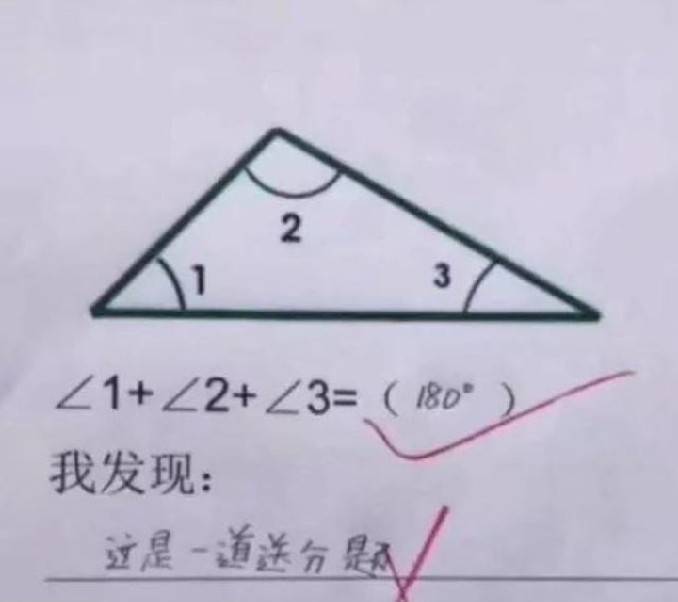 2
1
3
∠1+∠2+∠3=(180°)
我发现：
这是一道送分题